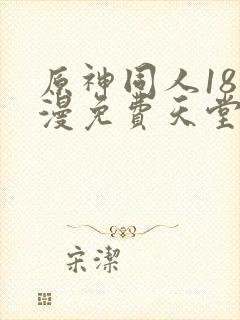 原神同人18
漫免費天堂
宋潔